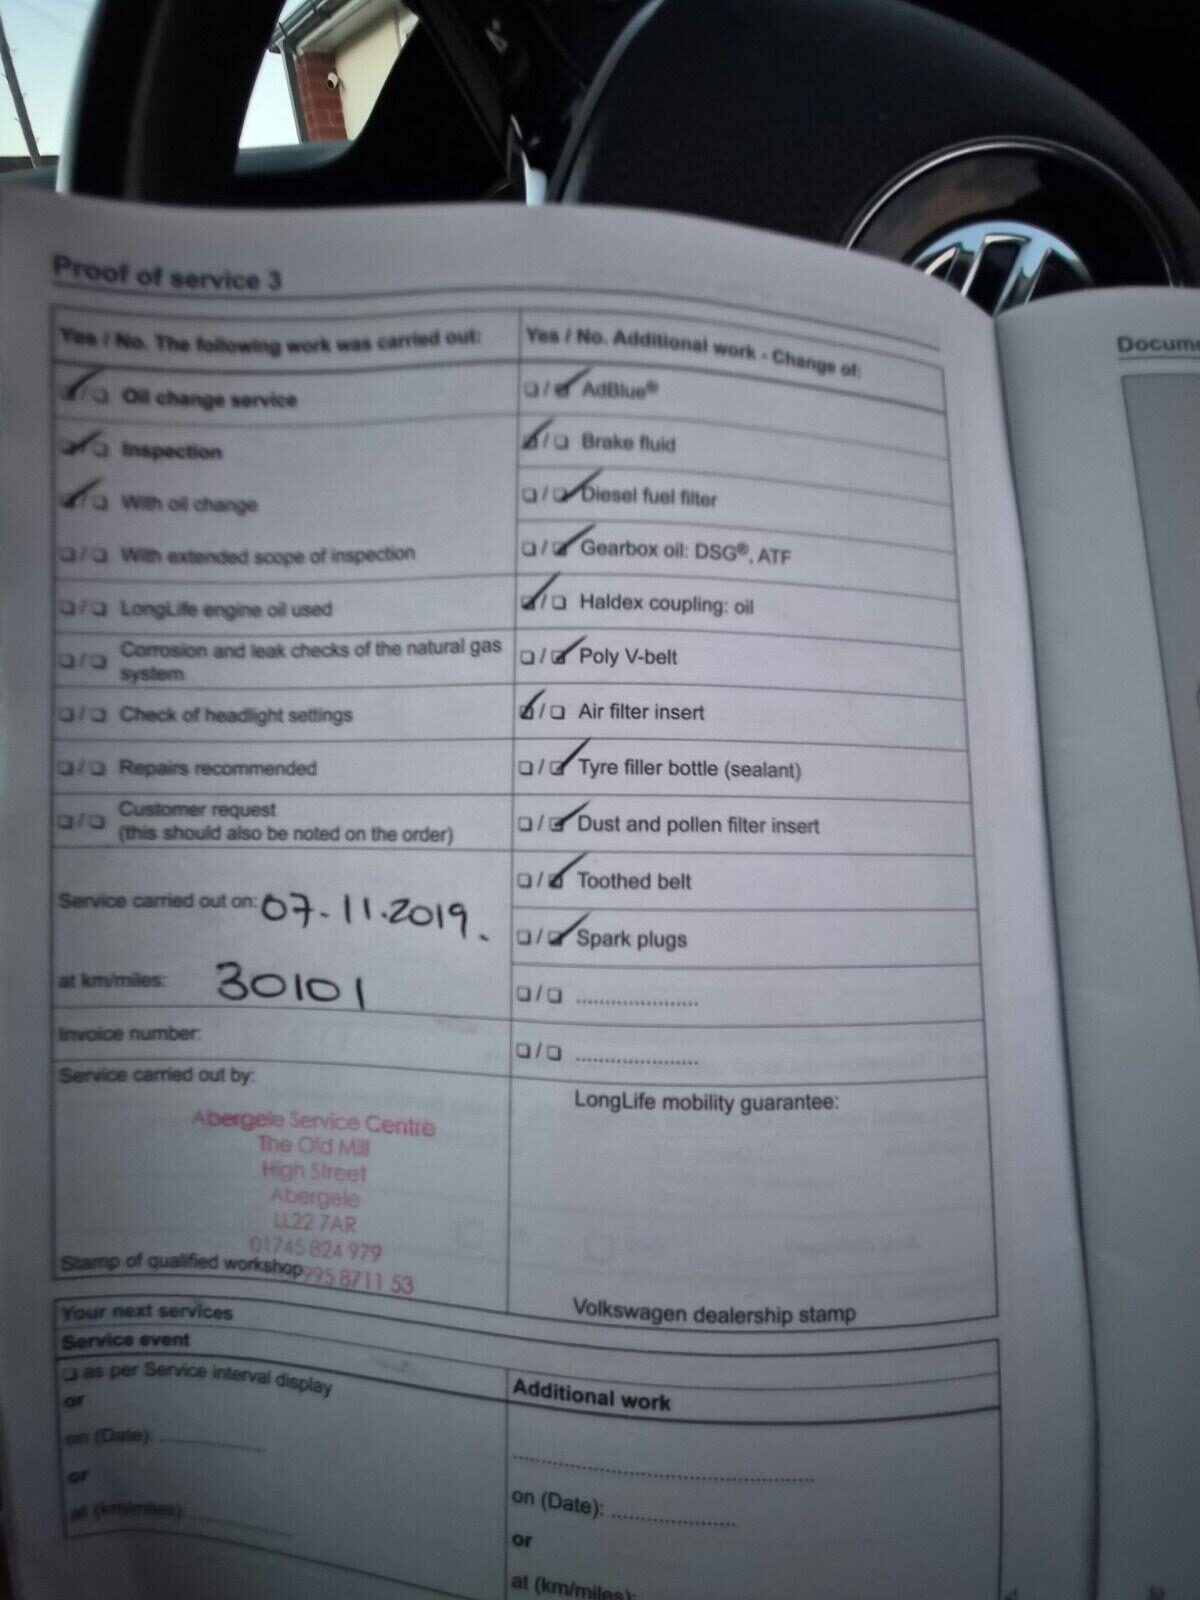 Proof of service 3
Yes / No. The following work was carried out:
Oil change service
Inspection
With oil change
With extended scope of inspection
LongLife engine oil used
Corrosion and leak checks of the natural gas
system
Check of headlight settings
Repairs recommended
Customer request
(this should also be noted on the order)
Service carried out on: 07-11.2019.
at km/miles: 30101
Invoice number:
Service carried out by:
Abergele Service Centre
The Old Mill
High Street
Abergele
LL22 7AR
01745 824 979
995 8711 53
Stamp of qualified workshop
Yes / No. Additional work - Change of:
AdBlue®
Brake fluid
Diesel fuel filter
Gearbox oil: DSG®, ATF
Haldex coupling: oil
Poly V-belt
Air filter insert
Tyre filler bottle (sealant)
Dust and pollen filter insert
Toothed belt
Spark plugs
LongLife mobility guarantee:
Volkswagen dealership stamp
Your next services
Service event
as per Service interval display
or
on (Date):
or
at (km/miles):
Additional work
on (Date):
or
at (km/miles):
Docume